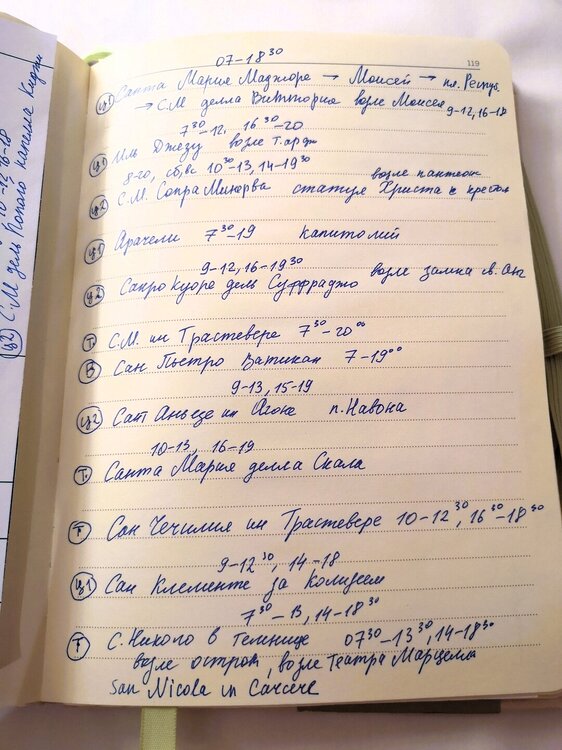 07-18³⁰
119
ц1 Санта Мария Маджоре → Моисей → пл. Респуб.
→ С.М делла Виттория возле Моисея 9-12, 16-18
7³⁰-12, 16³⁰-20
ц1 Иль Джезу возле т. ардж
8-20, сб, вс 10³⁰-13, 14-19³⁰ возле пантеон
ц2 С.М. Сопра Минерва статуя Христа с крестом
ц1 Арачели 7³⁰-19 капитолий
9-12, 16-19³⁰
ц2 Сакро Куоре дель Суффраджо возле замка св. Анг
Т С.М. ин Трастевере 7³⁰-20⁰⁰
В Сан Пьетро Ватикан 7-19⁰⁰
9-13, 15-19
ц2 Сант Аньезе ин Агоне п. Навона
10-13, 16-19
Т. Санта Мария делла Скала
Т Сан Чечилия ин Трастевере 10-12³⁰, 16³⁰-18³⁰
9-12³⁰, 14-18
ц1 Сан Клементе за Колизеем
7³⁰-13, 14-18³⁰
Т С. Николо в Темнице 07³⁰-13³⁰, 14-18³⁰
возле остров, возле Театра Марцелла
San Nicola in Carcere
10-12 16-18
ц2 С.М дель Пополо капелла Киджи